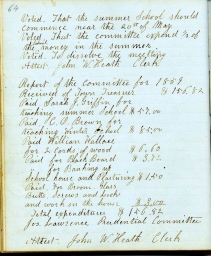 64
Voted. That the summer School should
commence near the 20th of May
Voted That the committee expend 1/3
of the money in the summer
Voted. To dissolve the meeting
Attest John W. Heath
Report of the Committee for 1859
Received of Town Treasurer $156.82
Paid Sarah J. Griffin for
teaching summer School $
Paid C. P. Brown for
teaching Winter School $
Paid William Wallace
for 2 cords of wood $ 6.60
Paid for Black Board $ 3.72
for Banking up
School house and
Paid for Broom
Butts Screws and
and work on the house $
Total expenditures $156.82
Lawrence Prudential Committee
Attest. John W. Heath Clerk